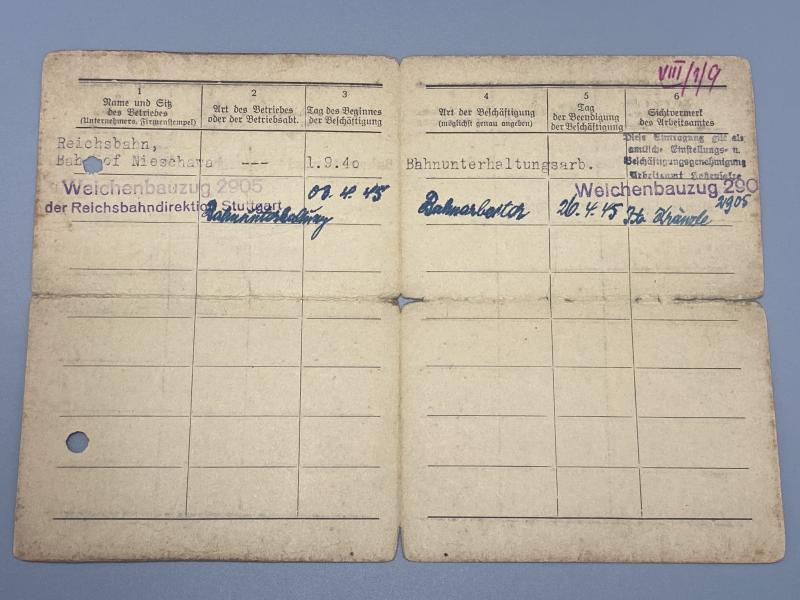 VIII/1/9
1
Name und Sitz
des Betriebes
(Unternehmers, Firmenstempel)
2
Art des Betriebes
oder der Betriebsabt.
3
Tag des Beginnes
der Beschäftigung
4
Art der Beschäftigung
(möglichst genau angeben)
5
Tag
der Beendigung
der Beschäftigung
6
Sichtvermerk
des Arbeitsamtes
Reichsbahn,
Bahnhof Nieschawa --- 1.9.40
Bahnunterhaltungsarb.
Diese Eintragung gilt als
amtliche Einstellungs- u.
Beschäftigungsgenehmigung
Arbeitsamt
Weichenbauzug 2905
der Reichsbahndirektion Stuttgart
Bahnunterhaltung
03.4.45
Bahnarbeiter
26.4.45
Weichenbauzug 290
2905
Kränzle